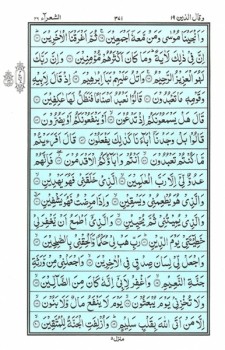 وقال الذين ١٩ ٣٧١ الشعرآء ٢٦
وَاَنْجَيْنَا مُوْسٰى وَمَنْ مَّعَهٗۤ اَجْمَعِيْنَ ۞ ثُمَّ اَغْرَقْنَا الْاٰخَرِيْنَ ۞
اِنَّ فِيْ ذٰلِكَ لَاٰيَةً ؕ وَمَا كَانَ اَكْثَرُهُمْ مُّؤْمِنِيْنَ ۞ وَاِنَّ رَبَّكَ
لَهُوَ الْعَزِيْزُ الرَّحِيْمُ ۞ وَاتْلُ عَلَيْهِمْ نَبَاَ اِبْرٰهِيْمَ ۞ اِذْ قَالَ لِاَبِيْهِ
وَقَوْمِهٖ مَا تَعْبُدُوْنَ ۞ قَالُوْا نَعْبُدُ اَصْنَامًا فَنَظَلُّ لَهَا عٰكِفِيْنَ ۞
قَالَ هَلْ يَسْمَعُوْنَكُمْ اِذْ تَدْعُوْنَ ۞ اَوْ يَنْفَعُوْنَكُمْ اَوْ يَضُرُّوْنَ ۞
قَالُوْا بَلْ وَجَدْنَاۤ اٰبَآءَنَا كَذٰلِكَ يَفْعَلُوْنَ ۞ قَالَ اَفَرَءَيْتُمْ
مَّا كُنْتُمْ تَعْبُدُوْنَ ۞ اَنْتُمْ وَاٰبَآؤُكُمُ الْاَقْدَمُوْنَ ۞ فَاِنَّهُمْ
عَدُوٌّ لِّيْۤ اِلَّا رَبَّ الْعٰلَمِيْنَ ۞ الَّذِيْ خَلَقَنِيْ فَهُوَ يَهْدِيْنِ ۞
وَالَّذِيْ هُوَ يُطْعِمُنِيْ وَيَسْقِيْنِ ۞ وَاِذَا مَرِضْتُ فَهُوَ يَشْفِيْنِ ۞
وَالَّذِيْ يُمِيْتُنِيْ ثُمَّ يُحْيِيْنِ ۞ وَالَّذِيْۤ اَطْمَعُ اَنْ يَّغْفِرَ لِيْ
خَطِيْٓئَتِيْ يَوْمَ الدِّيْنِ ۞ رَبِّ هَبْ لِيْ حُكْمًا وَّاَلْحِقْنِيْ بِالصّٰلِحِيْنَ ۞
وَاجْعَلْ لِّيْ لِسَانَ صِدْقٍ فِي الْاٰخِرِيْنَ ۞ وَاجْعَلْنِيْ مِنْ وَّرَثَةِ
جَنَّةِ النَّعِيْمِ ۞ وَاغْفِرْ لِاَبِيْۤ اِنَّهٗ كَانَ مِنَ الضَّآلِّيْنَ ۞
وَلَا تُخْزِنِيْ يَوْمَ يُبْعَثُوْنَ ۞ يَوْمَ لَا يَنْفَعُ مَالٌ وَّلَا بَنُوْنَ ۞
اِلَّا مَنْ اَتَى اللّٰهَ بِقَلْبٍ سَلِيْمٍ ۞ وَاُزْلِفَتِ الْجَنَّةُ لِلْمُتَّقِيْنَ ۞
منزل ٥